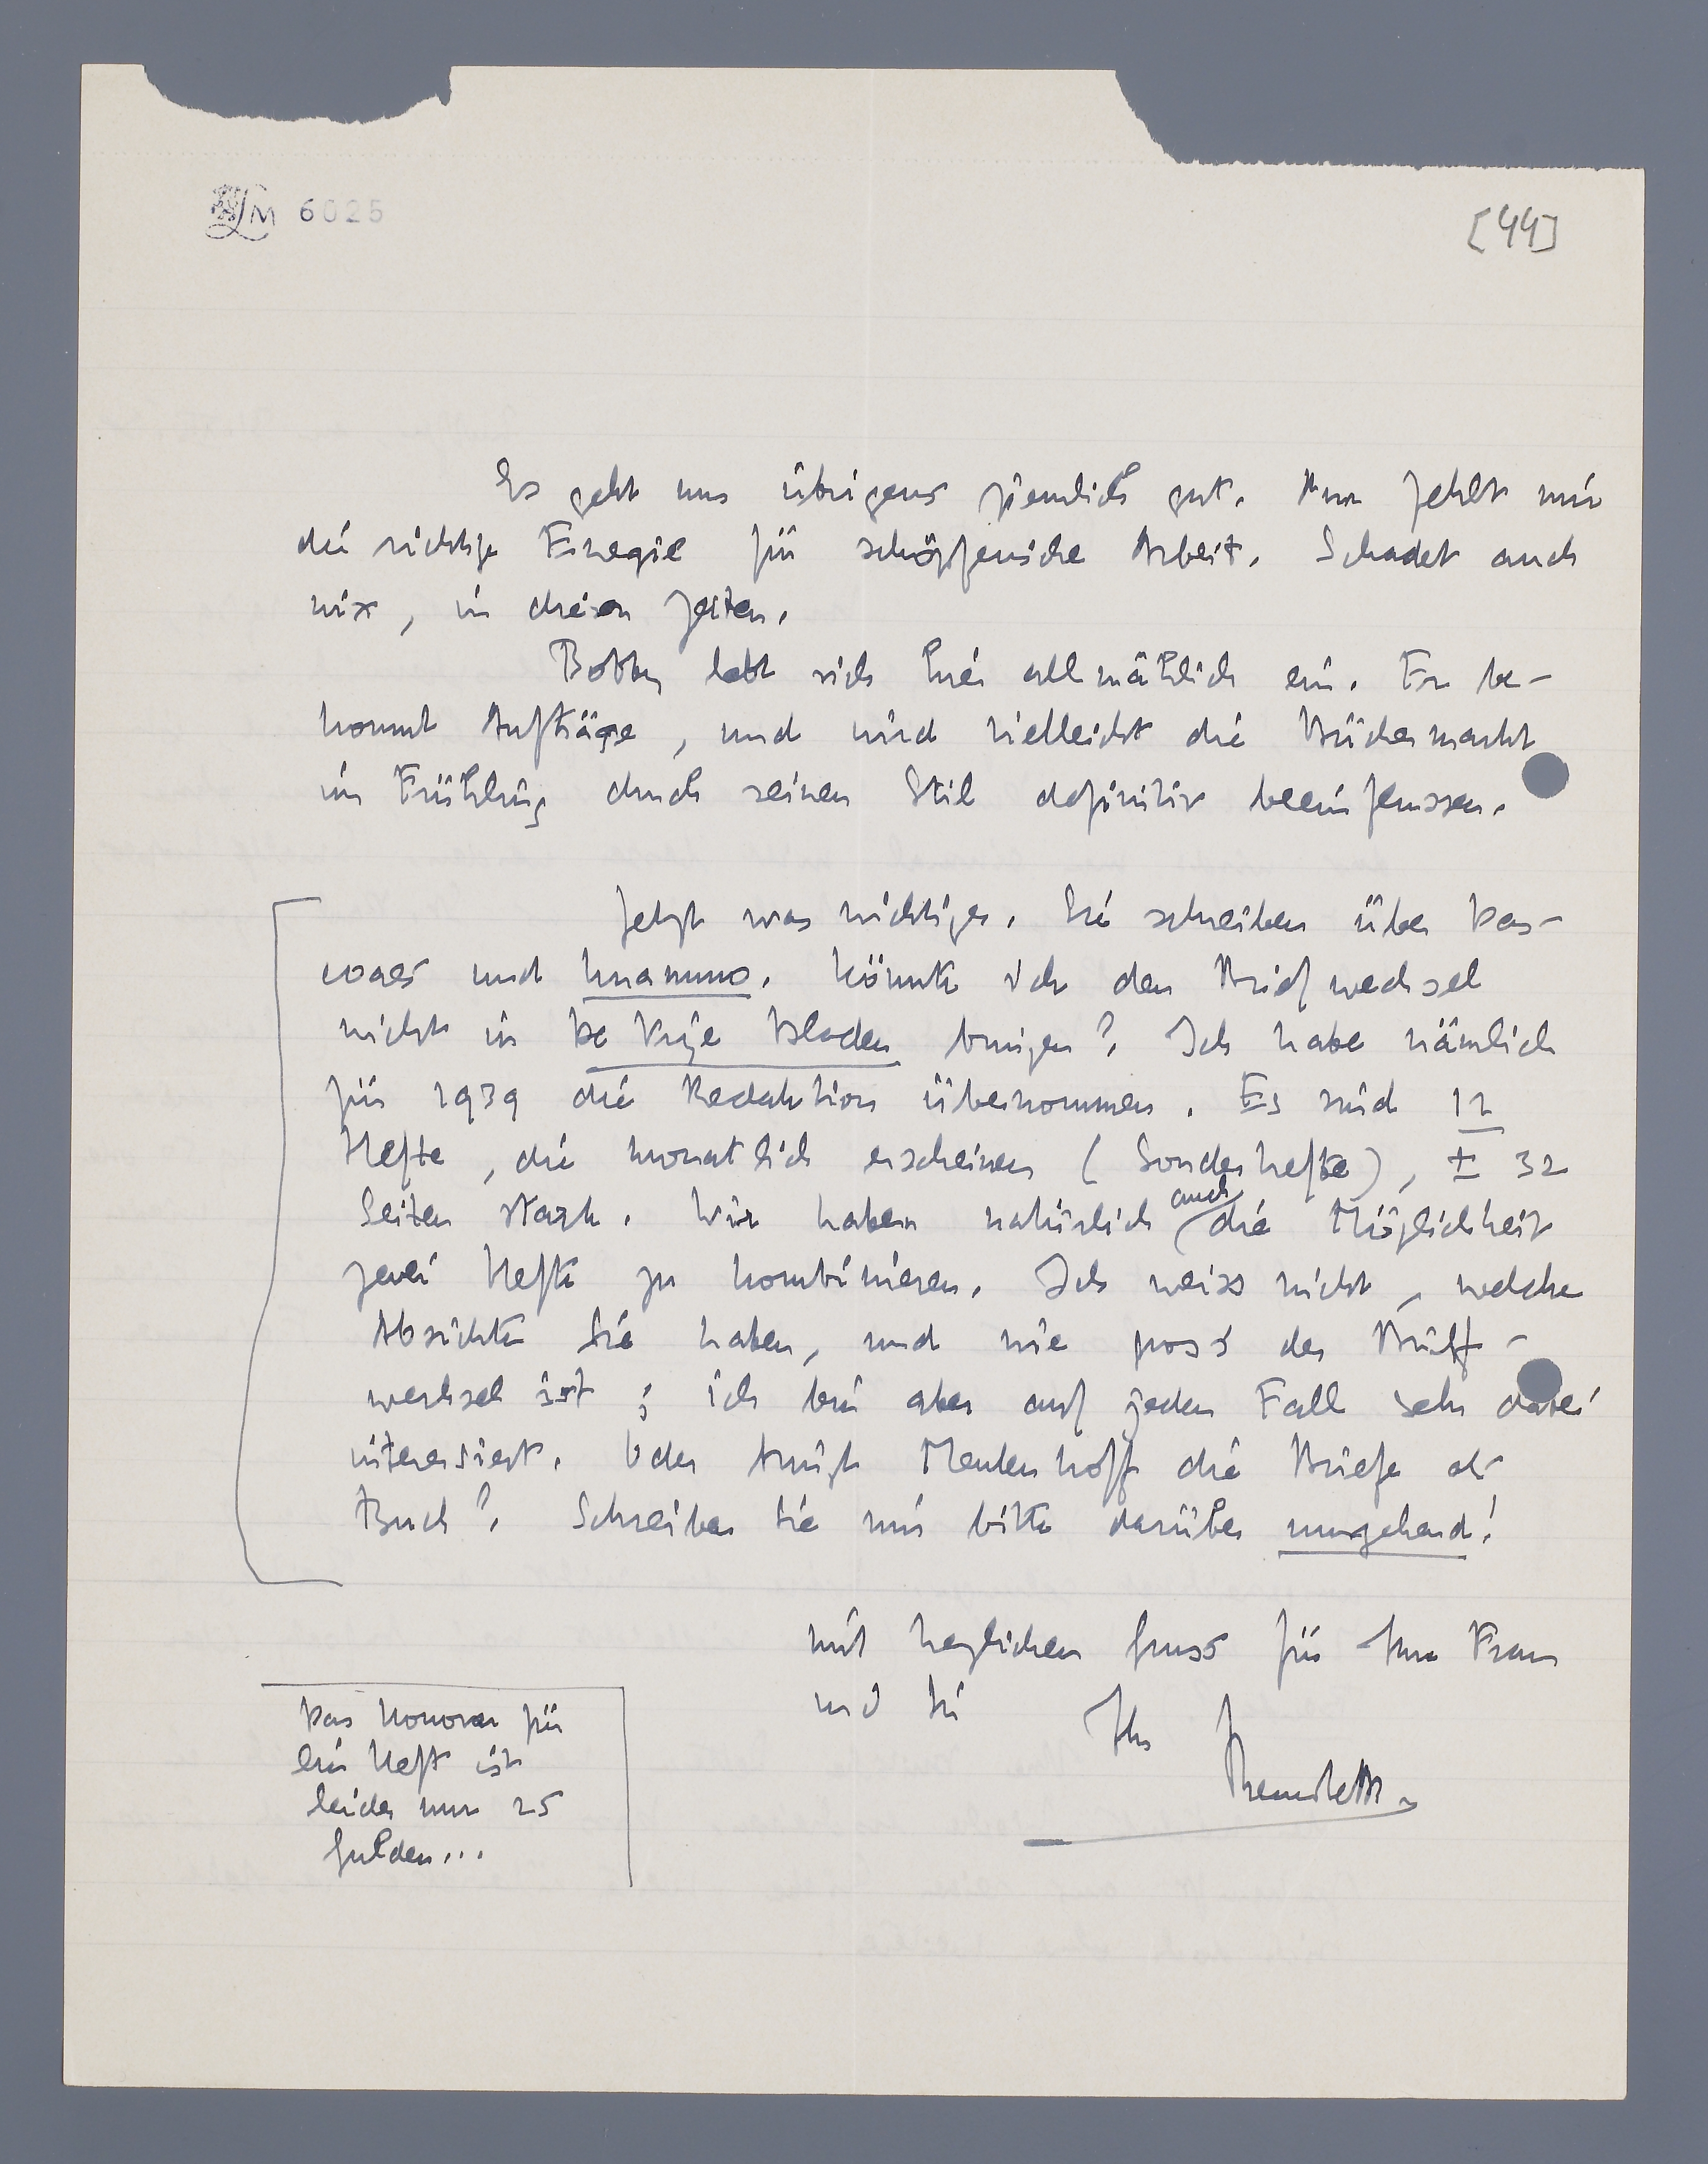 LM 6025
[44]
Es geht uns übrigens ziemlich gut. Nur fehlt mir
die richtige Energie für schöpferische Arbeit. Schadet auch
nix, in diesen Zeiten.
Bobby lebt sich hier allmählich ein. Er be-
kommt Aufträge, und wird vielleicht die Büchermarkt
im Frühling durch seinen Stil definitiv beeinflussen.
Jetzt was wichtiges. Sie schreiben über Das-
coaes und Unamuno. Könnte ich den Briefwechsel
nicht in De Vrije Bladen bringen? Ich habe nämlich
für 1939 die Redaktion übernommen. Es sind 12
Hefte, die monatlich erscheinen (Sonderhefte), ± 32
Seiten stark. Wir haben natürlich auch die Möglichkeit
zwei Hefte zu kombinieren. Ich weiss nicht, welche
Absichten Sie haben, und wie gross der Brief-
wechsel ist; ich bin aber auf jeden Fall sehr dabei
interessiert. Oder bringt Meulenhoff die Briefe als
Buch? Schreiben Sie mir bitte darüber umgehend!
mit herzlichen Gruss für Ihre Frau
und Sie
Ihr
Das Honorar für
ein Heft ist
leider nur 25
Gulden...